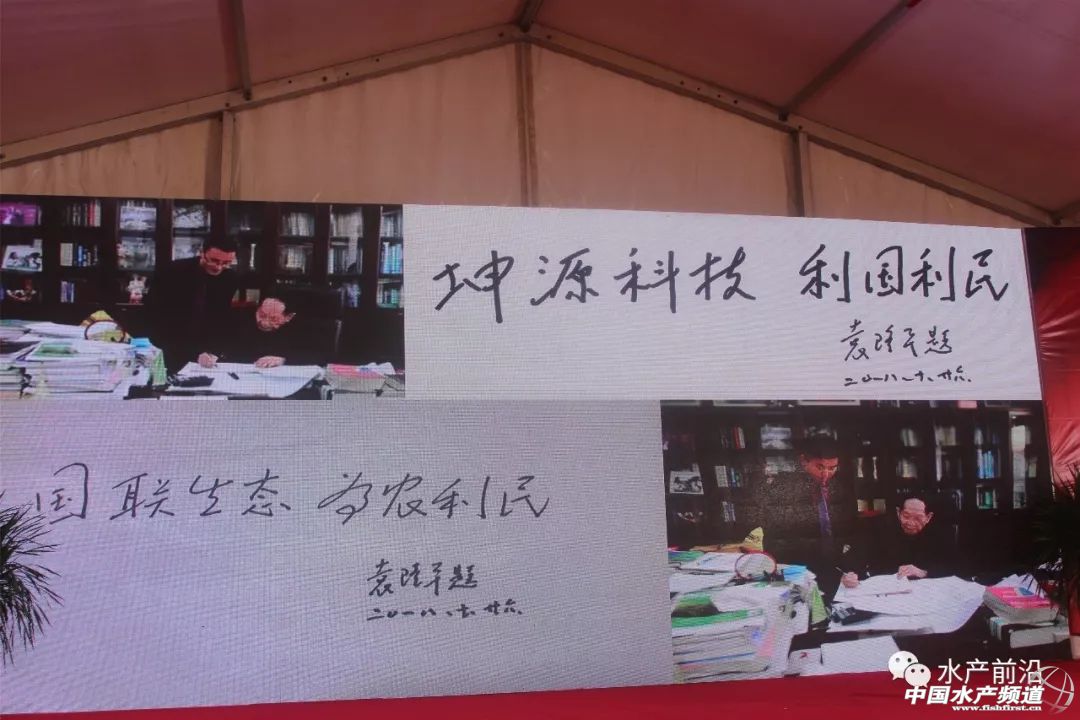 坤源科技 利国利民
袁隆平题
二〇一八、十、廿六.
国联生态 为农利民
袁隆平题
二〇一八、十、廿六.
水产前沿
中国水产频道
www.fishfirst.cn